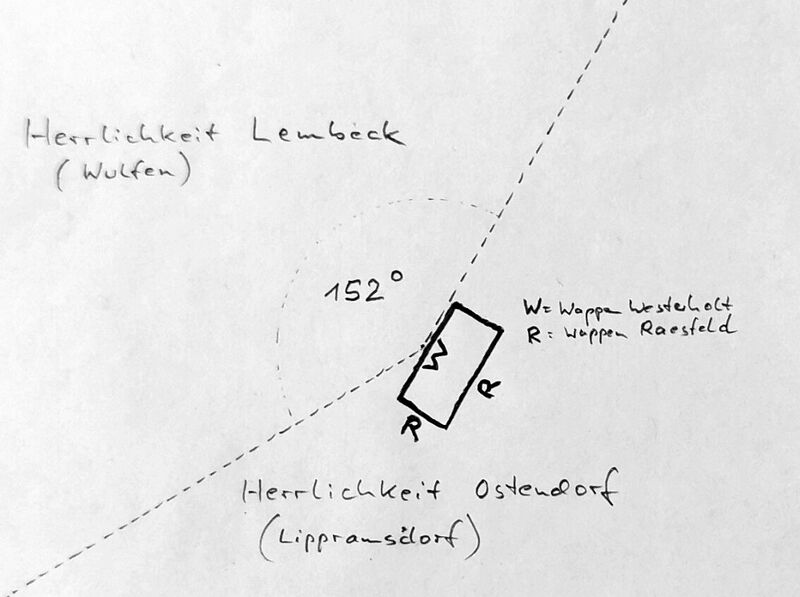 Herrlichkeit Lembeck
(Wulfen)
152°
W= Wappen Westerholt
R= Wappen Raesfeld
W
R
R
Herrlichkeit Ostendorf
(Lippramsdorf)